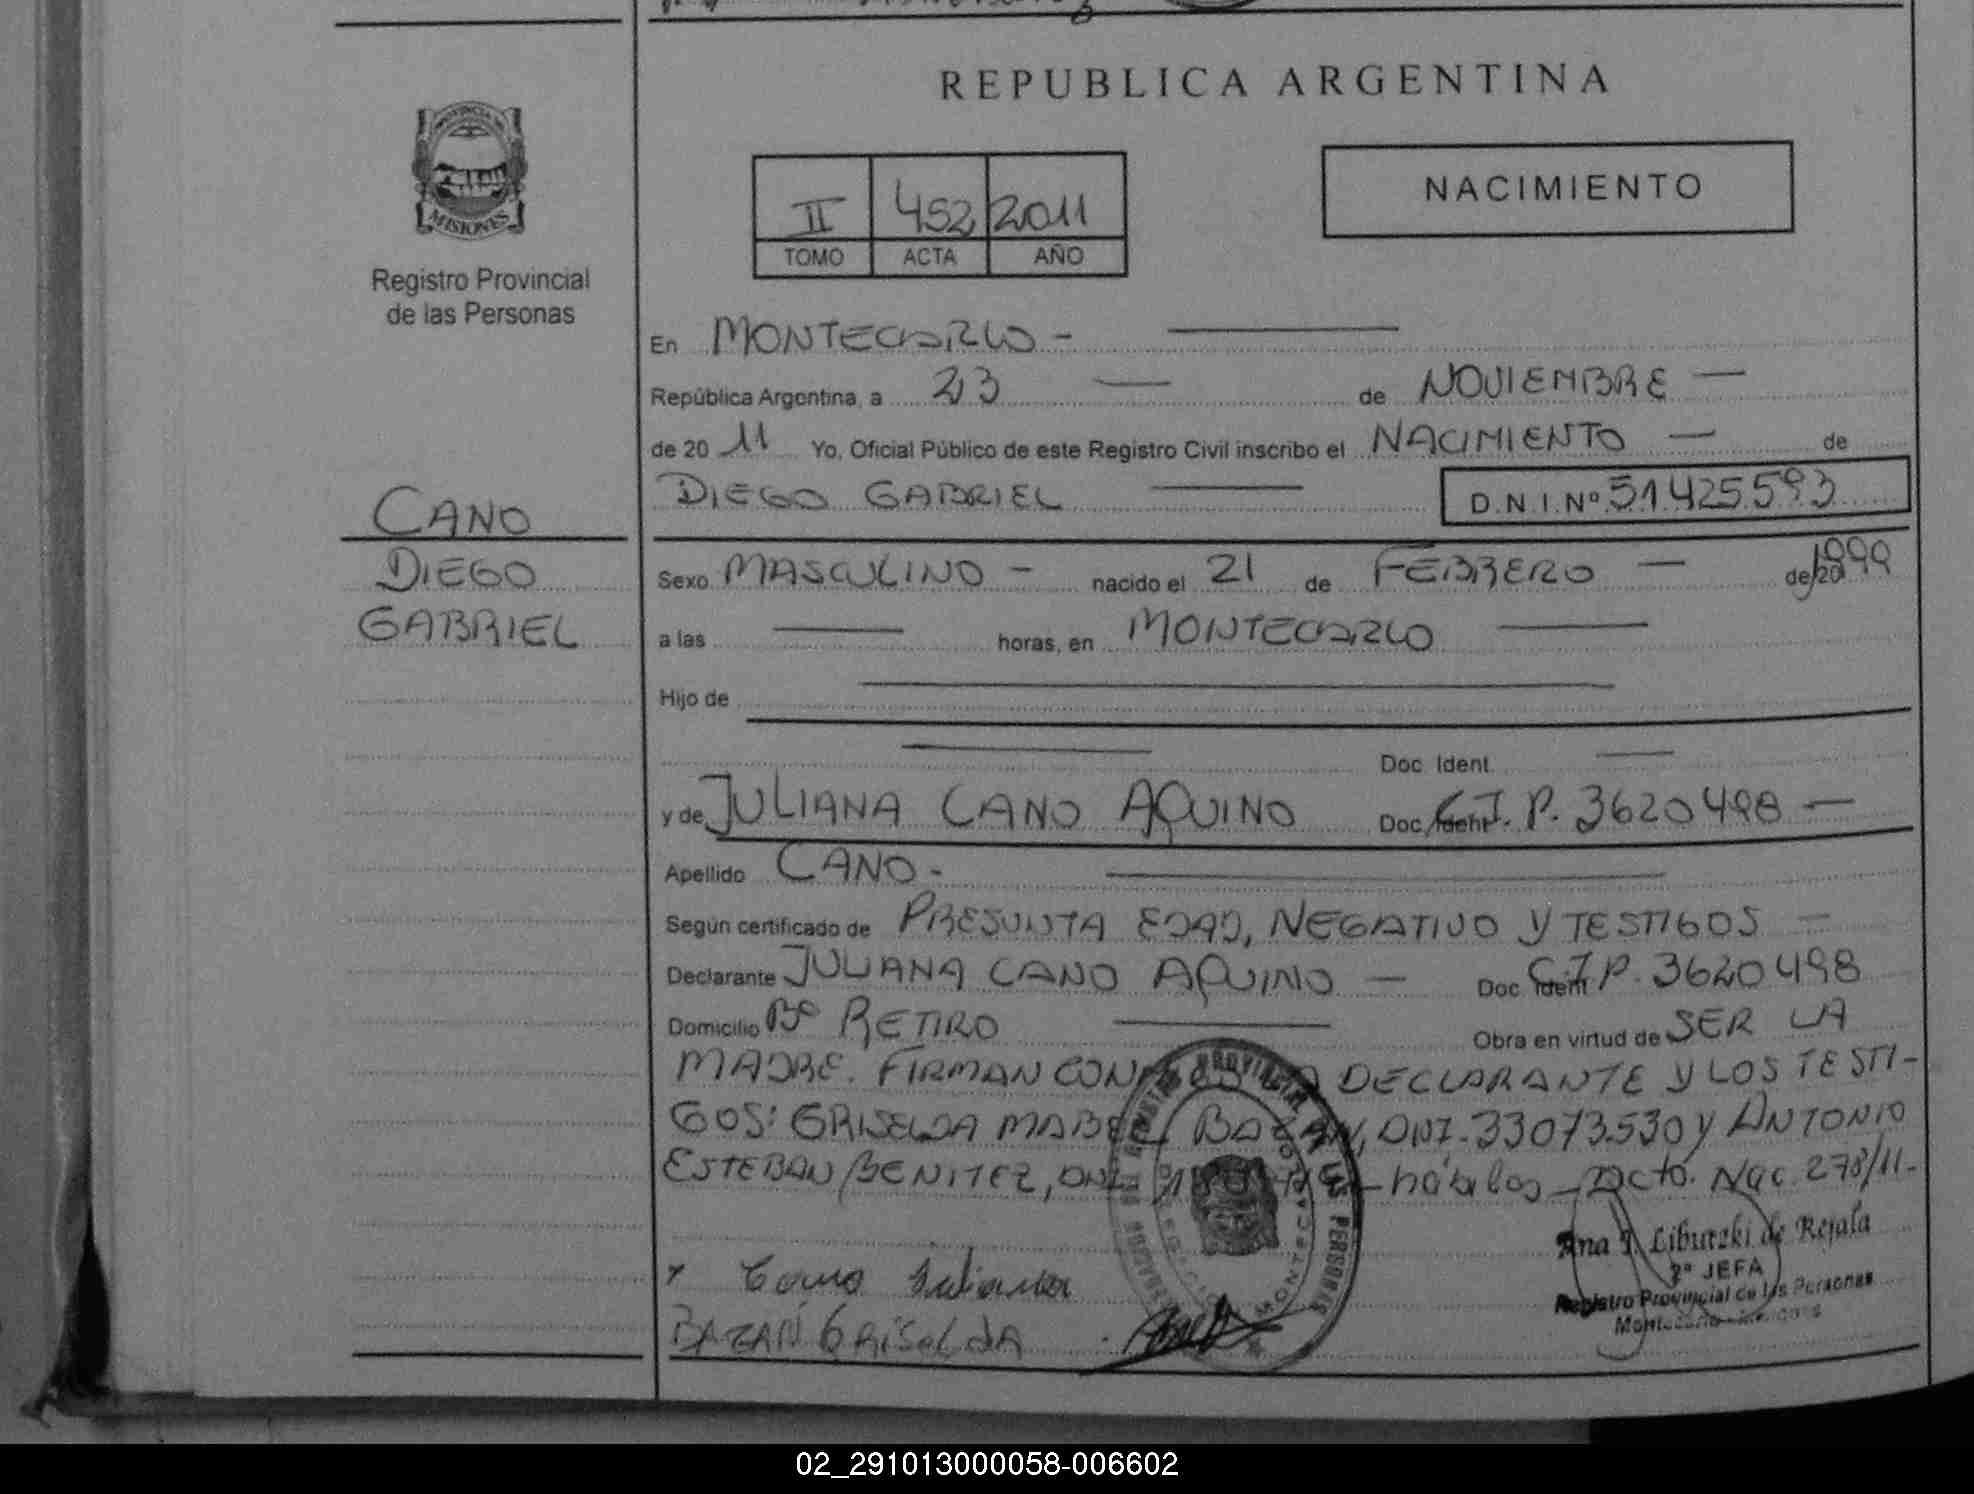 REPUBLICA ARGENTINA
PROVINCIA DE
MISIONES
Registro Provincial
de las Personas
II 452 2011
TOMO ACTA AÑO
NACIMIENTO
En MONTECARLO -
República Argentina, a 23 — de NOVIEMBRE —
de 20 11 Yo, Oficial Público de este Registro Civil inscribo el NACIMIENTO — de
DIEGO GABRIEL — D.N.I.Nº 51.425.593
CANO
DIEGO
GABRIEL
Sexo MASCULINO - nacido el 21 de FEBRERO — de 20 1999
a las — horas, en MONTECARLO —
Hijo de —
— Doc. Ident. —
y de JULIANA CANO AQUINO Doc. Ident. C.I.P. 3620498 —
Apellido CANO - —
Según certificado de PRESUNTA EDAD, NEGATIVO Y TESTIGOS —
Declarante JULIANA CANO AQUINO — Doc. Ident C.I.P. 3620498
Domicilio Bº RETIRO — Obra en virtud de SER LA
MADRE. FIRMAN DECLARANTE Y LOS TESTI-
GOS: GRISELDA MABEL BAZAN, DNI. 33073530 y ANTONIO
ESTEBAN BENITEZ, DNI - hábiles - Dcto. Nac. 278/11-
x Cano Juliana
BAZAN GRISELDA
Ana Libutzki de Rejala
2º JEFA
Registro Provincial de las Personas
Montecarlo - Misiones
02_291013000058-006602